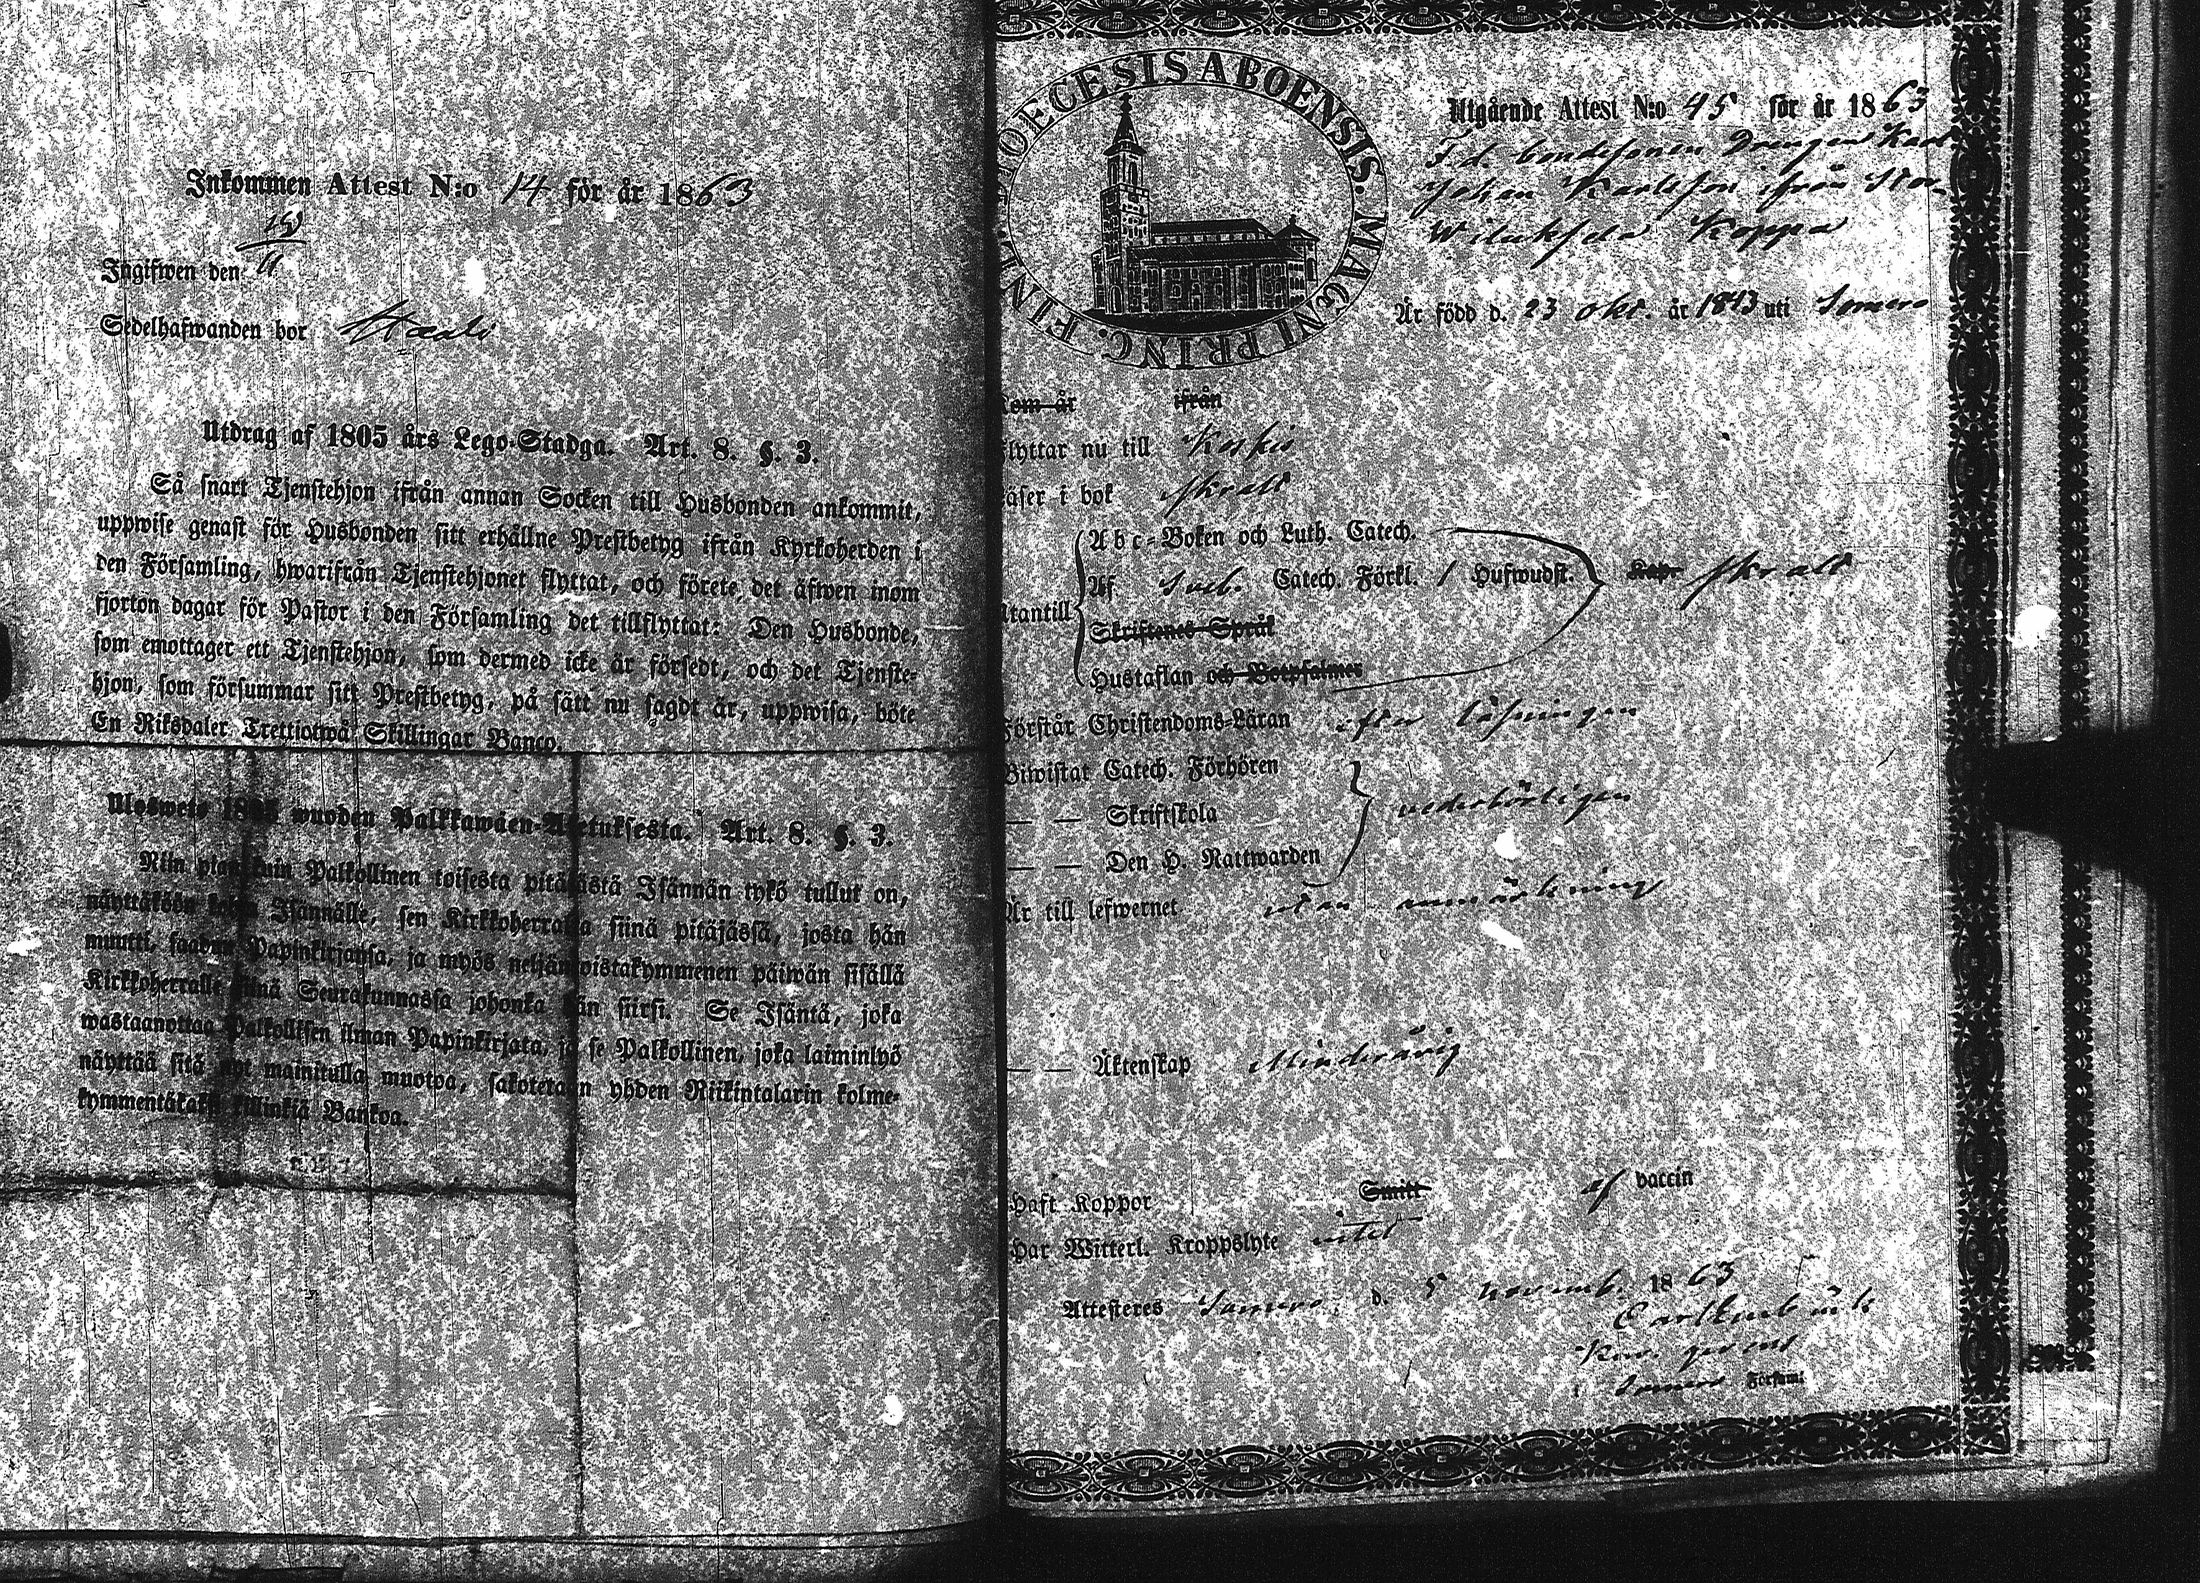 Inkommen Attest N:o 14 för år 1863
Ingifwen den 11
Sedelhafwanden bor
Utdrag af 1805 års Lego-Stadga. Art. 8. §. 3.
Så snart Tjenstehjon ifrån annan Socken till Husbonden ankommit,
uppwise genast för Husbonden sitt erhållne Prestbetyg ifrån Kyrkoherden i
den Församling, hwarifrån Tjenstehjonet flyttat, och förete det äfwen inom
fjorton dagar för Pastor i den Församling det tillflyttat: Den Husbonde,
som emottager ett Tjenstehjon, som dermed icke är försedt, och det Tjenste-
hjon, som försummar sitt Prestbetyg, på sätt nu sagdt är, uppwisa, böte
En Riksdaler Trettiotwå Skillingar Banco.
Ulosweto 1805 wuoden Palkkawäen-Asetuksesta. Art. 8. §. 3.
Niin pian kuin Palkollinen toisesta pitäjästä Isännän tykö tullut on,
näyttäköön kohta Isännälle, sen Kirkkoherralta siinä pitäjässä, josta hän
muutti, saadun Papinkirjansa, ja myös neljäntoistakymmenen päiwän sisällä
Kirkkoherralle siinä Seurakunnassa johonka hän siirsi. Se Isäntä, joka
wastaanottaa Palkollisen ilman Papinkirjata, ja se Palkollinen, joka laiminlyö
näyttää sitä nyt mainitulla muotoa, sakotetaan yhden Riikintalarin kolme-
kymmentäkaksi killinkiä Bankoa.
FINL. DIOECESIS ABOENSIS. MAGNI PRINC.
Utgående Attest N:o 45 för år 1863
F. d. bondesonen Drengen Karl
Johan Karlsson ifrån Sto-
Wiluksela Koppa
Är född d. 23 okt. år 1843 uti Somero
Kom år ifrån
Flyttar nu till Koskis
Läser i bok skrald
Utantill
Abc-Boken och Luth. Catech.
Af Sveb. Catech. Förkl. / Hufwudst. Kapr skrald
Skriftenes Språk
Hustaflan och Botpsalmer
Förstår Christendoms-Läran efter läsningen
Biwistat Catech. Förhören
— — Skriftskola vederbörligen
— — Den H. Nattwarden
Är till lefwernet utan anmärkning
— — Äktenskap Minderårig
Haft Koppor Smitt af vaccin
Har Witterl. Kroppslyte intet
Attesteres Somero d. 5 novemb. 1863
Somero Församl.